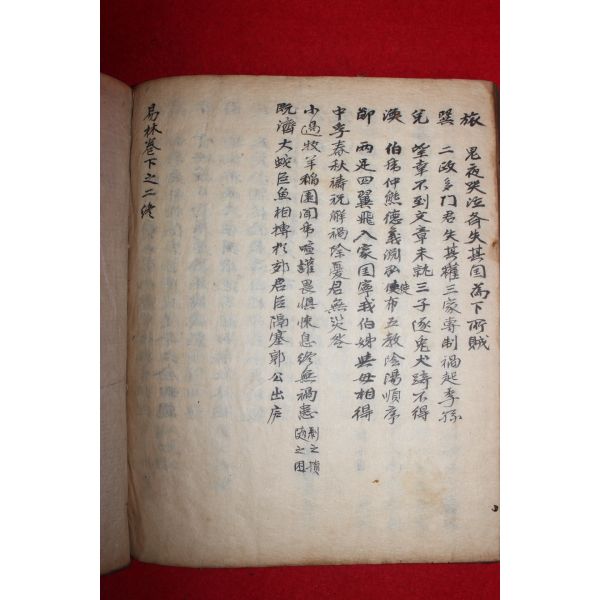 旅 鬼夜哭泣各失其国為下所賊
巽 二政多门君失其權三家專制禍起季孫
兌 筐章不到文章未就三子逐兔犬踦不得
渙 伯仲熊德義淵弘使布五教陰陽順序
節 两足四翼飛入家国寧我伯姊與母相得
中孚 春秋禱祝解禍除憂君無災咎
小過 牧羊稻園聞喧讙畏惧悚息終無禍患 剝之損 隨之困
既濟 大蛇巨魚相搏於郊君臣隔塞郭公出店
易林卷下之二終